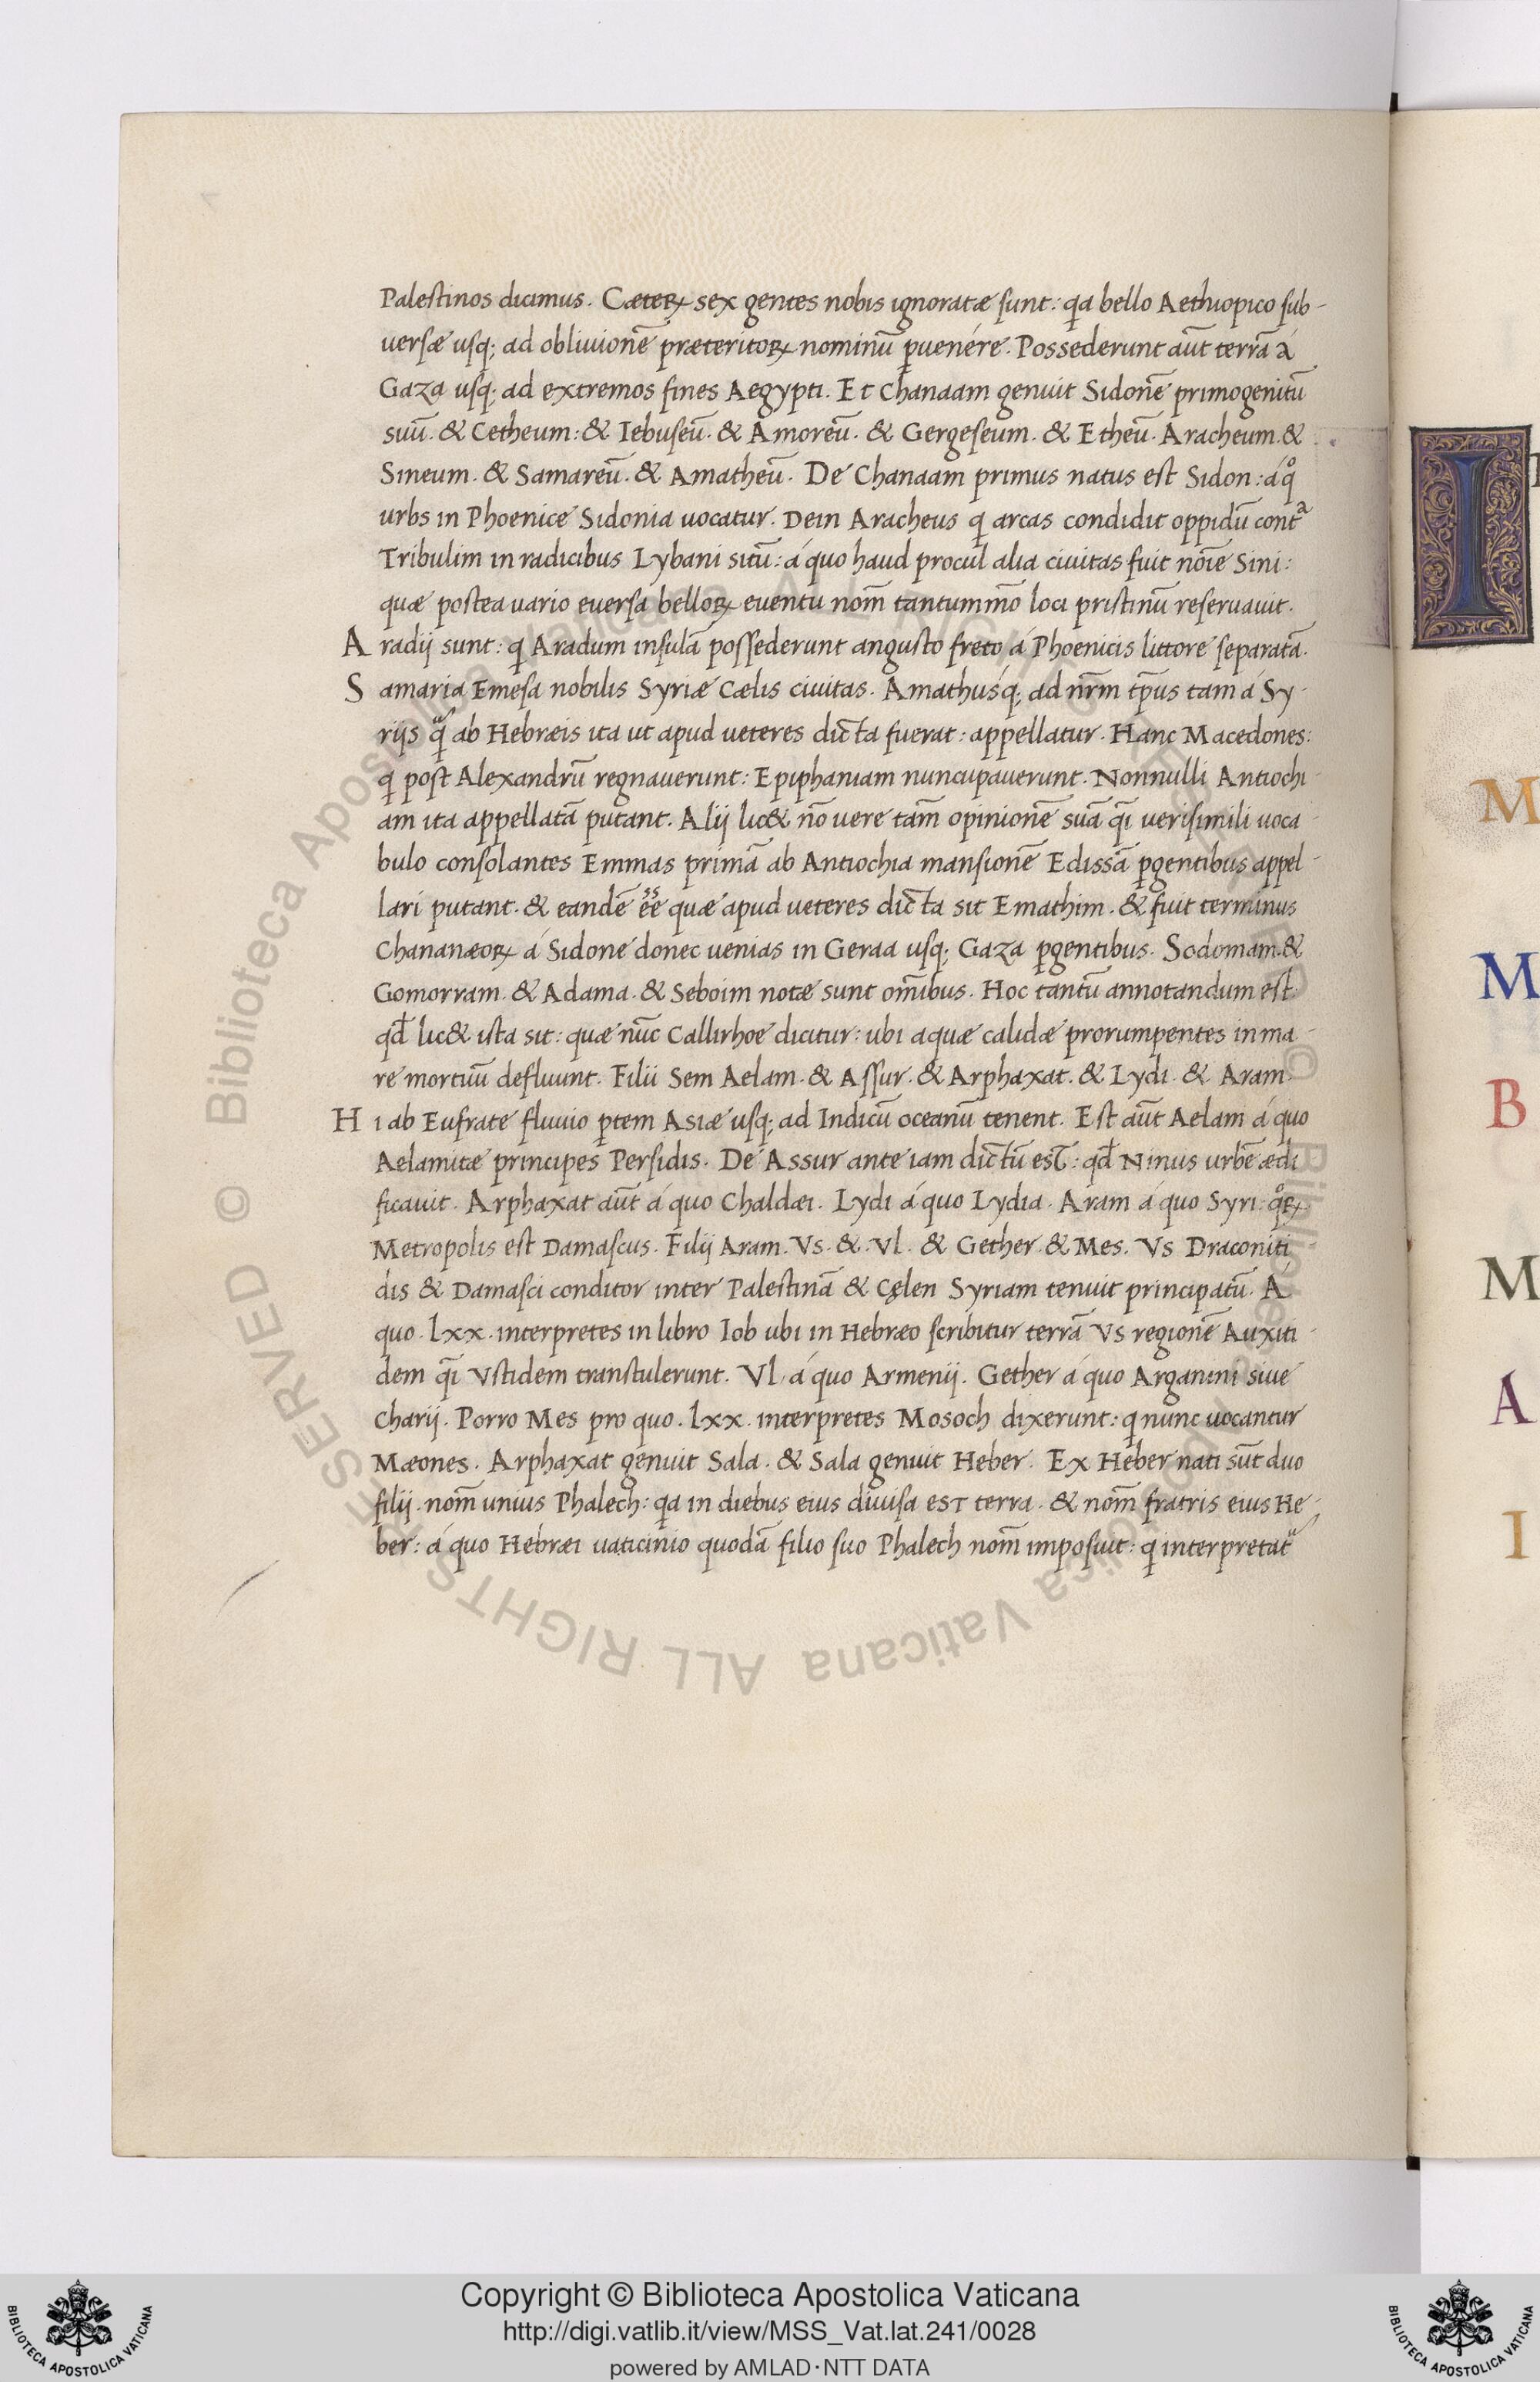 Palestinos dicimus. Cæteꝝ sex gentes nobis ignoratæ sunt: qa bello Aethiopico sub-
uersæ usq; ad obliuionē præteritoꝝ nominū ꝑuenére. Possederunt aūt terrā á
Gaza usq; ad extremos fines Aegypti. Et Chanaam genuit Sidonē primogenitū
suū. & Cetheum: & Iebuseū. & Amoreū. & Gergeseum. & Etheū. Aracheum. &
Sineum. & Samareū. & Amatheū. De Chanaam primus natus est Sidon: á qͦ
urbs in Phoenice Sidonia uocatur. Dein Aracheus q arcas condidit oppidū contᵃ
Tribulim in radicibus Lybani sitū: á quo haud procul alia ciuitas fuit noīe Sini:
quæ postea uario euersa belloꝝ euentu nom̄ tantummō loci pristinū reseruauit.
A radij sunt: q Aradum insulā possederunt angusto freto á Phoenicis littore separatā.
S amaria Emesa nobilis Syriæ Cælis ciuitas. Amathusq; ad nr̄m tp̄us tam á Sy-
rijs qᷓ ab Hebræis ita ut apud ueteres dicta fuerat: appellatur. Hanc Macedones:
q post Alexandrū regnauerunt: Epiphaniam nuncupauerunt. Nonnulli Antiochi-
am ita appellatā putant. Alij lic& nō uere tam̄ opinionē suā qı̄ uerisimili uoca-
bulo consolantes Emmas primā ab Antiochia mansionē Edissā ꝑgentibus appel-
lari putant. & eandē eē quæ apud ueteres dicta sit Emathim. & fuit terminus
Chananæoꝝ á Sidone donec uenias in Geraa usq; Gaza ꝑgentibus. Sodomam. &
Gomorram. & Adama. & Seboim notæ sunt om̄ibus. Hoc tantū annotandum est.
qd̄ lic& ista sit: quæ nūc Callirhoe dicitur: ubi aquæ calidæ prorumpentes in ma-
re mortuū defluunt. Filii Sem Aelam. & Assur. & Arphaxat. & Lydi. & Aram.
H i ab Eufrate fluuio ꝑtem Asiæ usq; ad Indicū oceanū tenent. Est aūt Aelam á quo
Aelamitæ principes Persidis. De Assur ante iam dictū est: qd̄ Ninus urbē ædi
ficauit. Arphaxat aūt á quo Chaldæi. Lydi á quo Lydia. Aram á quo Syri: qͦꝝ
Metropolis est Damascus. Filij Aram. Vs. &. Vl. & Gether. & Mes. Vs Draconiti
dis & Damasci conditor inter Palestinā & Cęlen Syriam tenuit principatū. A
quo. lxx. interpretes in libro Iob ubi in Hebræo scribitur terrā Vs regionē Auxiti-
dem qı̄ Vstidem transtulerunt. Vl. á quo Armenij. Gether á quo Arganini siue
Charij. Porro Mes pro quo. lxx. interpretes Mosoch dixerunt: q nunc uocantur
Mæones. Arphaxat genuit Sala. & Sala genuit Heber. Ex Heber nati sūt duo
filij. nom̄ unius Phalech: qa in diebus eius diuisa est terra. & nom̄ fratris eius He-
ber: á quo Hebræi uaticinio quodā filio suo Phalech nom̄ imposuit: q interpretat᷑
I
M
M
B
M
A
I
© Biblioteca Apostolica Vaticana ALL RIGHTS RESERVED
Copyright © Biblioteca Apostolica Vaticana
http://digi.vatlib.it/view/MSS_Vat.lat.241/0028
powered by AMLAD·NTT DATA
BIBLIOTECA APOSTOLICA VATICANA
BIBLIOTECA APOSTOLICA VATICANA